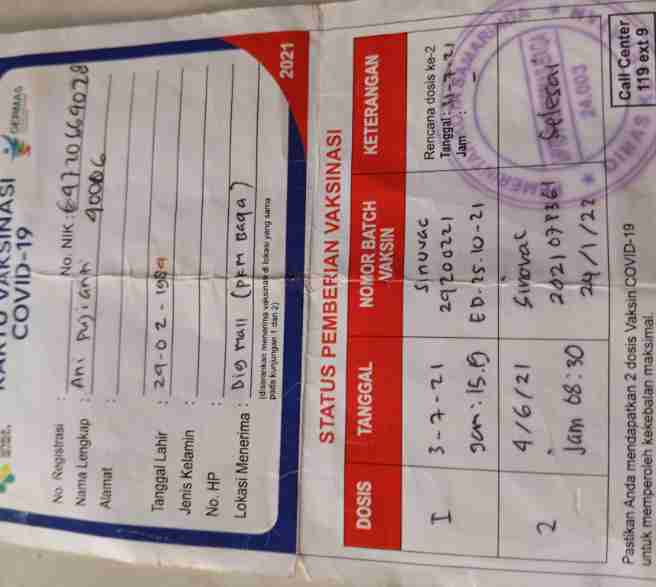 KARTU VAKSINASI
COVID-19
GERMAS
No. Registrasi :
No. NIK : 697205669028
Nama Lengkap : Ani Pujianti 90006
Alamat :
Tanggal Lahir : 29-02-1989
Jenis Kelamin :
No. HP :
Lokasi Menerima : Big Mall (PKM Baqa)
(disarankan menerima vaksinasi di lokasi yang sama
pada kunjungan 1 dan 2)
2021
STATUS PEMBERIAN VAKSINASI
DOSIS TANGGAL NOMOR BATCH VAKSIN KETERANGAN
I 3-7-21 Sinovac Rencana dosis ke-2
Tanggal : 31-7-21
Jam : -
Jam : 15.9 29200221
ED.25.10-21
2 4/6/21 Sinovac Selesai
202107P361
Jam 08:30 24/1/22
Pastikan Anda mendapatkan 2 dosis Vaksin COVID-19
untuk memperoleh kekebalan maksimal.
Call Center
119 ext 9